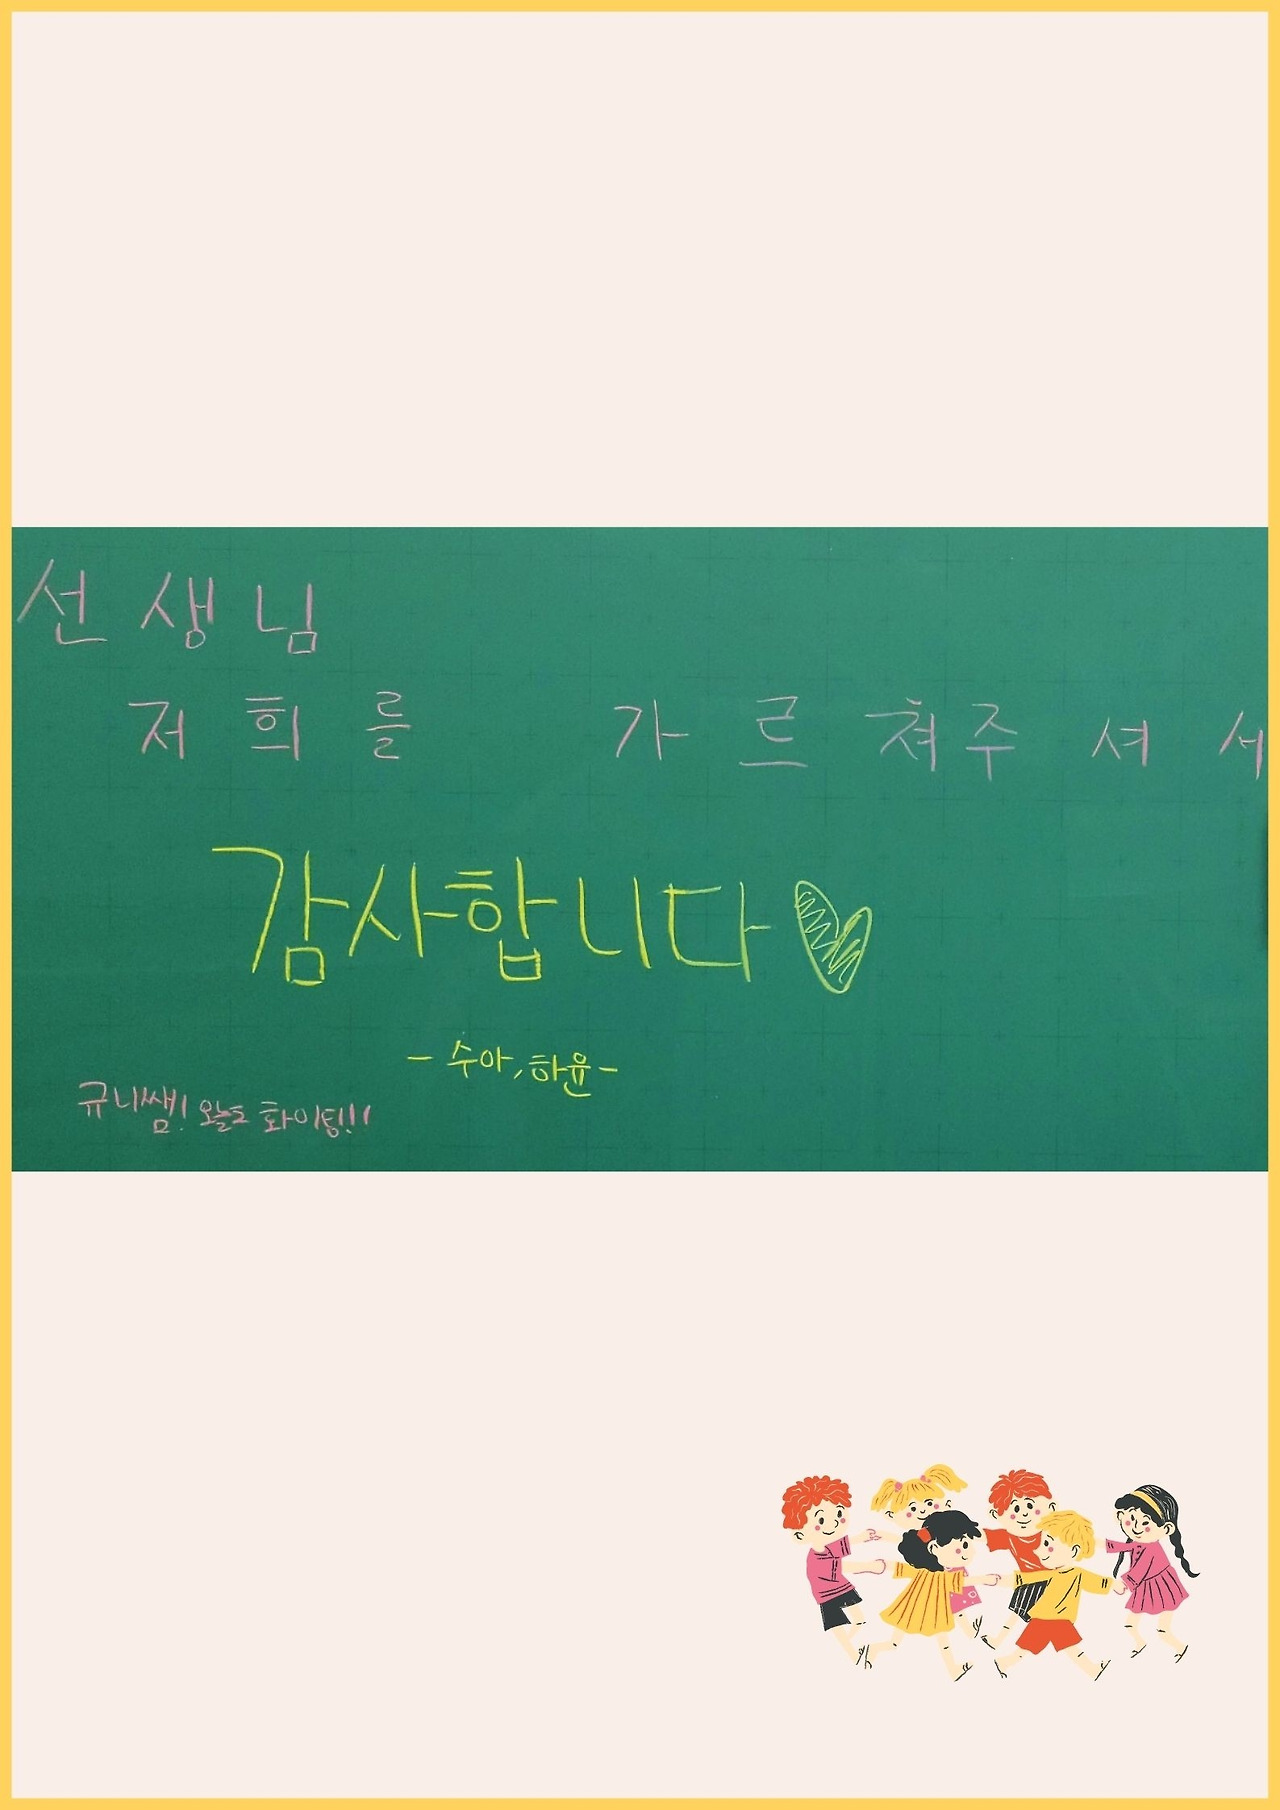 선생님
저희를 가르쳐주셔서
감사합니다♡
- 수아, 하윤 -
규니쌤! 오늘도 화이팅!!!